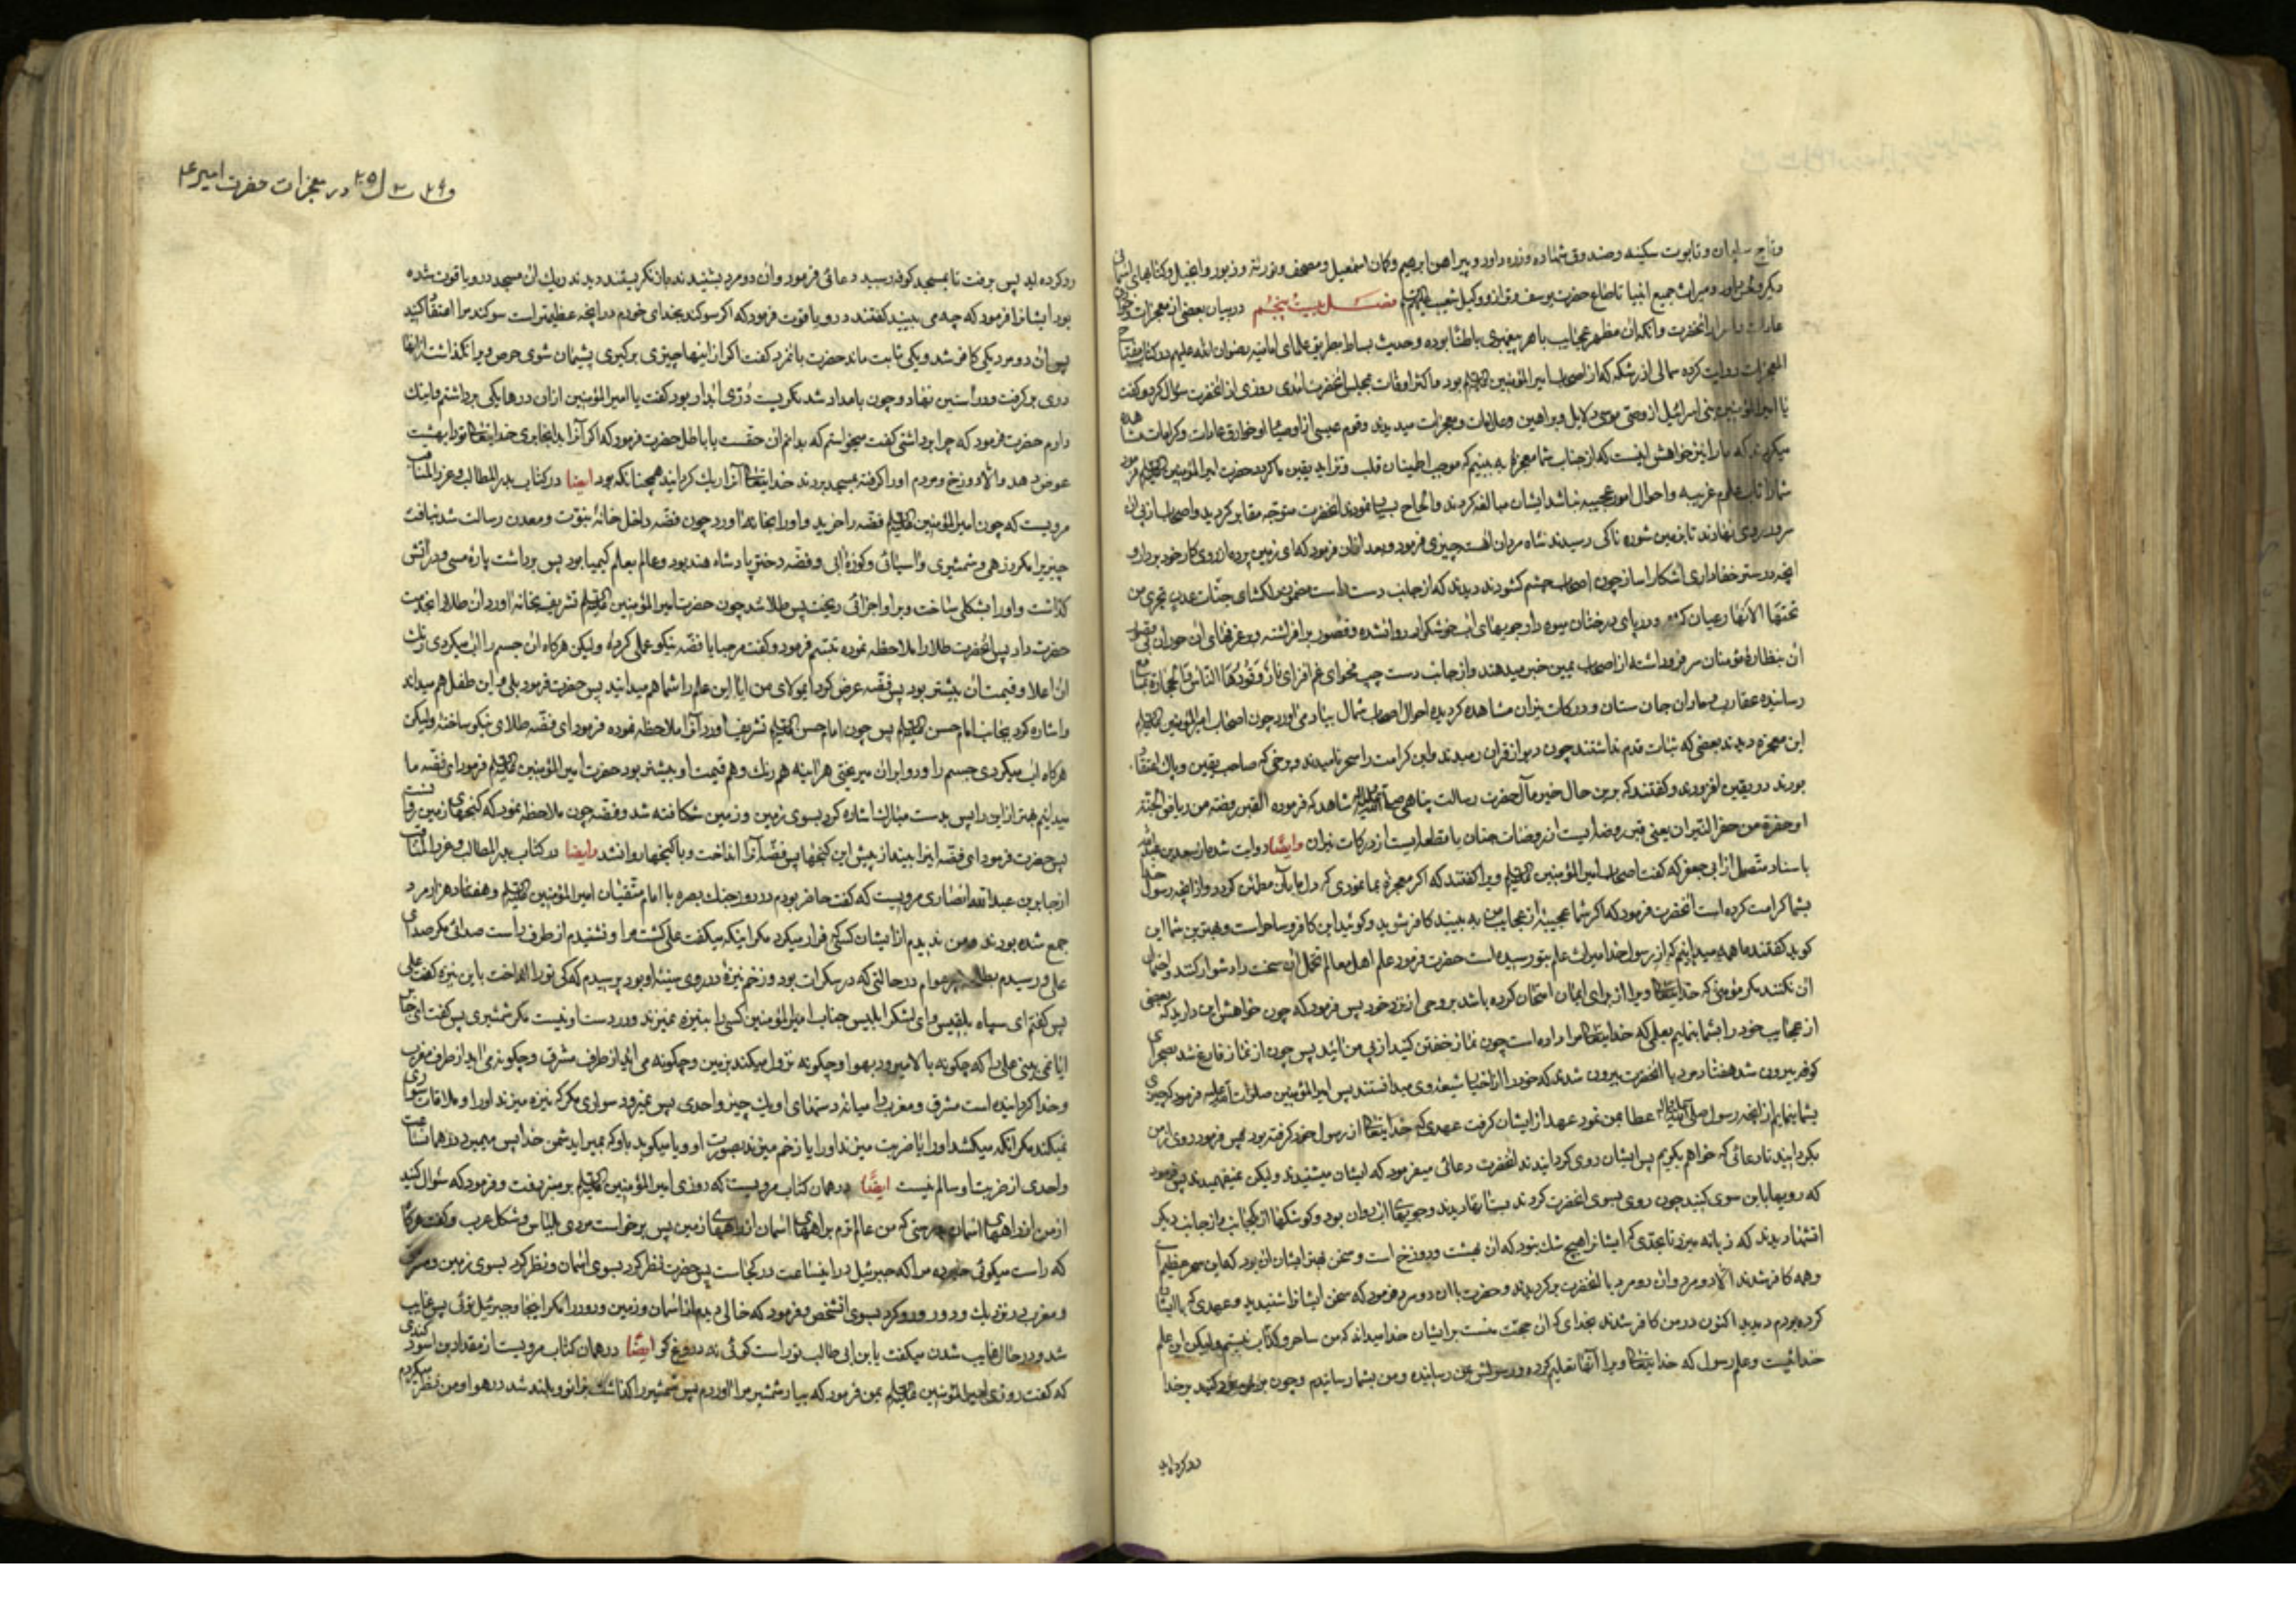 وتاج سلیمان وتابوت سکینه وصندوق شهاده وزره داود وپیراهن ابرهیم وکمان اسمعیل ومصحف وتوریة وزبور وانجیل وکتابهای
ومیراث جمیع انبیا حضرت یوسف شعیب علیهم السلم فصل بیست پنجم دربیان بعضی از معجزات
انحضرت وانکه ان مظهر عجایب باهر پیغمبری باطنا بوده وحدیث بساط بطریق علمای امامیه رضوان الله علیهم در کتاب مفتاح
المعجزات روایت کرده که از اصحاب امیرالمؤمنین علیه السلم بود واکثر اوقات بمجلس انحضرت امدی روزی از انحضرت سؤال کرد وکفت
یا امیرالمؤمنین بنی اسرائیل از وصی موسی دلایل وبراهین وعلامات ومعجزات میدیدند وقوم عیسی از اوصیا او خوارق عادات وکرامات مشاهده
میکردند که مارا نیز خواهش اینست که از جناب شما معجزهٔ به بینیم که موجب اطمینان قلب وتزاید یقین ما کردد حضرت امیرالمؤمنین علیه السلم فرمود
شما را تاب علوم غریبه واحوال امور عجیبه نباشد ایشان مبالغه کردند والحاح بسیار نمودند انحضرت متوجه مقابر کردید واصحاب از پی ان
سرور روی نهادند تا بزمین شوره ناکی رسیدند شاه مردان اهسته چیزی فرمود وبعد ازان فرمود که ای زمین پرده از روی کار خود بردار و
انچه در ستر خفا داری اشکارا ساز چون اصحاب چشم کشودند دیدند که از جانب دست راست مضمون دلکشای جنات عدن تجری من
تحتها الانهار عیان کشته ودر پای درختان میوه دار جویهای اب خوشکوار روانشده وقصور برافراشته ودر غرفهای ان حوران
ان بنظارهٔ مؤمنان سر فرو داشته از اصحاب یمین خبر میدهند واز جانب دست چپ فحوای غم افزای نار وقودها الناس والحجارة
رساننده عقارب وماران جان ستان ودرکات نیران مشاهده کردیده احوال اصحاب شمال بیاد می اورد چون اصحاب امیرالمؤمنین علیه السلم
این معجزه دیدند بعضی که ثبات قدم نداشتند چون دیو از قران رمیدند واین کرامت را سحر نامیدند وبرخی که صاحب یقین وپاک اعتقاد
بودند در یقین افزودند وکفتند که برین حال خیر مآل حضرت رسالت پناهی صلی الله علیه واله شاهد که فرموده القبر روضة من ریاض الجنة
او حفرة من حفر النیران یعنی قبر روضه ایست از روضات جنان یا قطعه ایست از درکات نیران وایضا روایت شده از سعد بن عبدالله
باسناد متصل از ابی جعفر که کفت اصحاب امیرالمؤمنین علیه السلم ویرا کفتند که اکر معجزهٔ بما نمودی که دل ما بآن مطمئن کردد واز انچه رسول خدا
بشما کرامت کرده است انحضرت فرمود که اکر شما عجیبهٔ از عجایب من به بینید کافر شوید وکوئید این کافر وساحر است وبهترین شما این
کوید کفتند ما همه میدانیم که از رسول خدا میراث علم بتو رسیده است حضرت فرمود علم اهل معالم تحمل ان سخت ودشوار کنند واحتمال
ان نکنند مکر مؤمنی که خدایتعالی ویرا از برای ایمان امتحان کرده باشد بروحی از نزد خود پس فرمود که چون خواهش این دارید که بعضی
از عجایب خود را بشما بنمایم بعلمی که خدایتعالی مرا داده است چون نماز خفتن کنید از پی من ائید پس چون از نماز فارغ شد بصحرای
کوفه بیرون شد هفتاد مرد با انحضرت بیرون شدند که خود را از اخیار شیعهٔ وی میدانستند پس امیرالمؤمنین صلوات الله علیه فرمود که چیزی
بشما بنمایم از انچه رسول صلی الله علیه واله عطا بمن نمود عهد از ایشان کرفت عهدی که خدایتعالی از رسول خود کرفته بود پس فرمود روی از من
بکردانید تا دعائی که خواهم بکویم پس ایشان روی کردانیدند انحضرت دعائی میفرمود که ایشان میشنیدند ولیکن نمیفهمیدند پس فرمود
که رویها باین سوی کنید چون روی بسوی انحضرت کردند بستانها دیدند وجویها اب روان بود وکوشکها از یکجانب واز جانب دیکر
اتشها دیدند که زبانه میزد تا بحدی که ایشانرا هیچ شک نبود که ان بهشت ودوزخ است وسخن بهتر ایشان ان بود که این سحر عظیم است
وهمه کافر شدند الا دو مرد وان دو مرد با انحضرت برکردیدند وحضرت باان دو مرد فرمود که سخن ایشانرا شنیدید وعهدی که باایشان
کرده بودم دیدید اکنون در من کافر شدند بخدای که ان حجت منست بر ایشان خدا میداند که من ساحر وکذاب نیستم ولیکن این علم
خدائیست وعلم رسول که خدایتعالی ویرا آنها تعلیم کرده ورسولش بمن رسانیده ومن بشما رسانیدم وچون بر من رد کنید بر خدا
رد کرده اید
در معجزات حضرت امیر ع م
رد کرده اید پس برفت تا بمسجد کوفه رسید دعائی فرمود وان دو مرد بشنیدند بازنکریستند دیدند ریک ان مسجد در ویاقوت شده
بود ایشانرا فرمود که چه می بینید کفتند در ویاقوت فرمود که اکر سوکند بخدای خودم در انچه عظیمتر است سوکند مرا اعتقاد کنید
پس ان دو مرد یکی کافر شد ویکی ثابت ماند حضرت بانمرد کفت اکر از اینها چیزی برکیری پشیمان شوی حرص ویرا نکذاشت از انها
دری برکرفت ودر استین نهاد وچون بامداد شد نکریست دری ابدار بود کفت یا امیرالمؤمنین ازان درها یکی برداشتم واینک
دارم حضرت فرمود که چرا برداشتی کفت میخواستم که بدانم ان حقست یا باطل حضرت فرمود که اکر آنرا بدانجا بری خدایتعالی تو را بهشت
عوض دهد والا دوزخ ومردم اورا کرفته بمسجد بردند خدایتعالی آنرا ریک کردانید همچنانکه بود ایضا در کتاب بدر المطالب وغرر المناقب
مرویست که چون امیرالمؤمنین علیه السلم فضه را خرید واورا بخانه اورد چون فضه داخل خانهٔ نبوت ومعدن رسالت شد نیافت
چیزیرا مکر زرهی وشمشیری واسیائی وکوزهٔ ابی وفضه دختر پادشاه هند بود وعالم بعلم کیمیا بود پس برداشت پارهٔ مسی ودر آتش
کذاشت واورا بشکلی ساخت وبر او اجزائی ریخت پس طلا شد چون حضرت امیرالمؤمنین علیه السلم تشریف بخانه اورد ان طلا را بخدمت
حضرت داد پس انحضرت طلا را ملاحظه نموده تبسم فرمود وکفت مرحبا یا فضه نیکو عملی کردهٔ ولیکن هرکاه ان جسم را اب میکردی رنک
ان اعلا وقیمت ان بیشتر بود پس فضه عرض کرد ایمولای من ایا این علم را شما هم میدانید پس حضرت فرمود بلی واین طفل هم میداند
واشاره کرد بجناب امام حسن علیه السلم پس چون امام حسن علیه السلم تشریف اورد آنرا ملاحظه نموده فرمود ای فضه طلای نیکو ساخته ولیکن
هرکاه اب میکردی جسم را ودوا بران میریختی هراینه هم رنک وهم قیمت او بیشتر بود حضرت امیرالمؤمنین علیه السلم فرمود ای فضه ما
میدانیم بهتر از این را پس بدست مبارک اشاره کرد بسوی زمین وزمین شکافته شد وفضه چون ملاحظه نمود که کنجهای زمین روانست
پس حضرت فرمود ای فضه اینرا بینداز پیش این کنجها پس فضه آنرا انداخت وباکنجها روانشد وایضا در کتاب بدر المطالب وغرر المناقب
از جابر بن عبدالله انصاری مرویست که کفت حاضر بودم در روز جنک بصره با امام متقیان امیرالمؤمنین علیه السلم وهفتاد هزار مرد
جمع شده بودند ومن ندیدم از ایشان کسی که فرار میکرد مکر اینکه میکفت علی کشت مرا ونشنیدم از طرف راست صدائی مکر صدای
علی ورسیدم بطلحه در حالتی که در سکرات بود وزخم نیزهٔ در روی سینهٔ او بود پرسیدم که کی تو را انداخت باین نیزه کفت علی
پس کفتم ای سپاه بلقیس وای لشکر ابلیس جناب امیرالمؤمنین کسی را به نیزه نمیزند ودر دست او نیست مکر شمشیری پس کفت ای جابر
ایا نمی بینی علی را که چکونه بالا میرود بهوا وچکونه نزول میکند بزمین وچکونه می اید از طرف مشرق وچکونه می اید از طرف مغرب
وخدا کردانیده است مشرق ومغرب را میانهٔ دستهای او یک چیز واحدی پس نمیرود سواری مکر که نیزه میزند اورا وملاقات
نمیکند مکر انکه میکشد اورا یا ضربت میزند اورا یا زخم میزند بصورت او ویا میکوید باو که بمیر ایدشمن خدا پس میمیرد در همان ساعت
واحدی از ضربت او سالم نیست ایضا در همان کتاب مرویست که روزی امیرالمؤمنین علیه السلم بر منبر رفت وفرمود که سؤال کنید
از من از راههای اسمان بدرستی که من عالم ترم براههای اسمان از راههای زمین پس برخواست مردی بلباس وشکل عرب وکفت هرکاه
که راست میکوئی خبر ده مرا که جبرئیل در اینساعت در کجاست پس حضرت نظر کرد بسوی اسمان ونظر کرد بسوی زمین ومشرق
ومغرب ونزدیک ودور ورو کرد بسوی انشخص وفرمود که خالی دیدم از او اسمان وزمین ودور را مکر اینجا وجبرئیل توئی پس غایب
شد ودر حال غایب شدن میکفت یابن ابی طالب تو راست کوئی نه دروغ کو ایضا در همان کتاب مرویست از مقداد بن اسود کندی
که کفت روزی امیرالمؤمنین علیه السلم بمن فرمود که بیار شمشیر مرا اوردم پس شمشیر را کذاشت بزانو وبلند شد در هوا ومن نظر میکردم